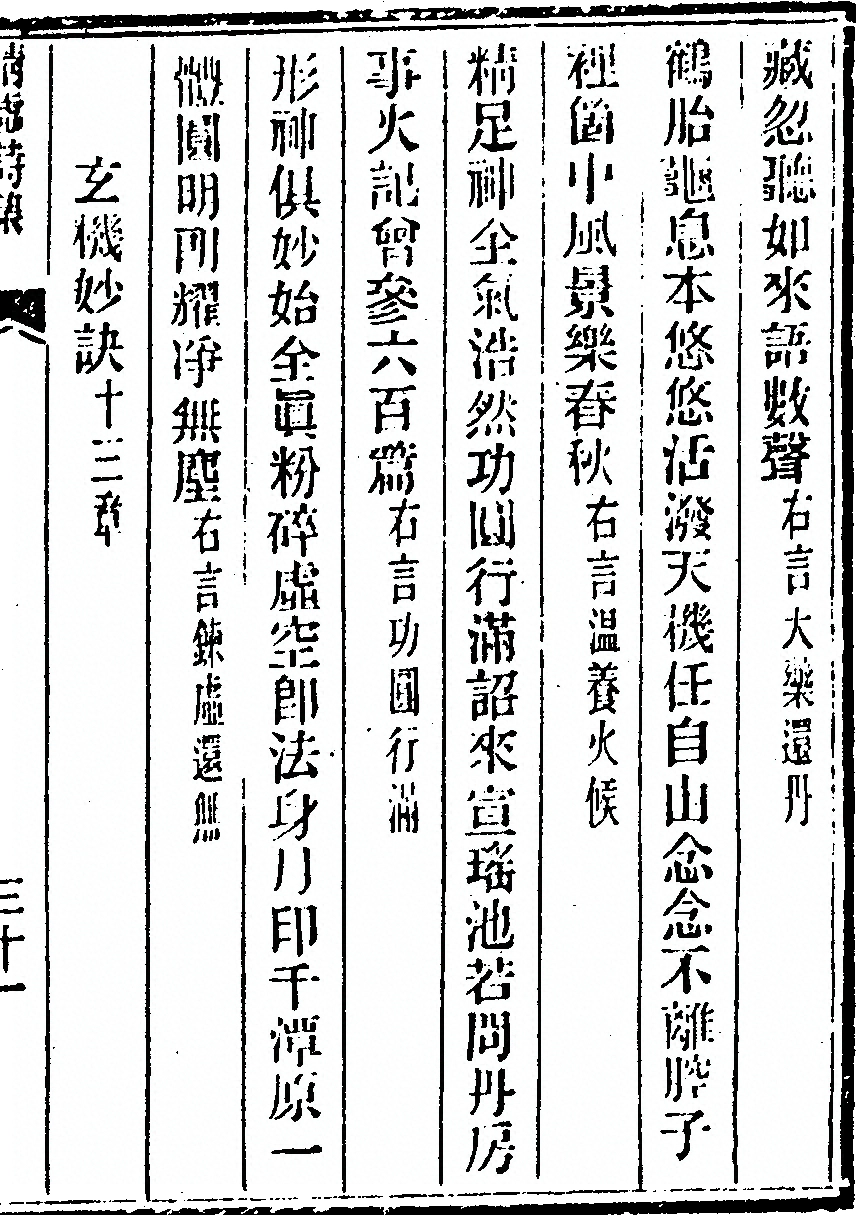 藏忽聽如來語數聲右言大藥還丹
鶴胎龜息本悠悠活潑天機任自由念念不離腔子
裡個中風景樂春秋右言温養火候
精足神全氣浩然功圓行滿詔來宣瑤池若問丹房
事火記曾參六百篇右言功圓行滿
形神俱妙始全眞粉碎虛空卽法身月印千潭原一
㣲圓明剛耀淨無塵右言鍊虛還無
玄機妙訣十三章
三十一